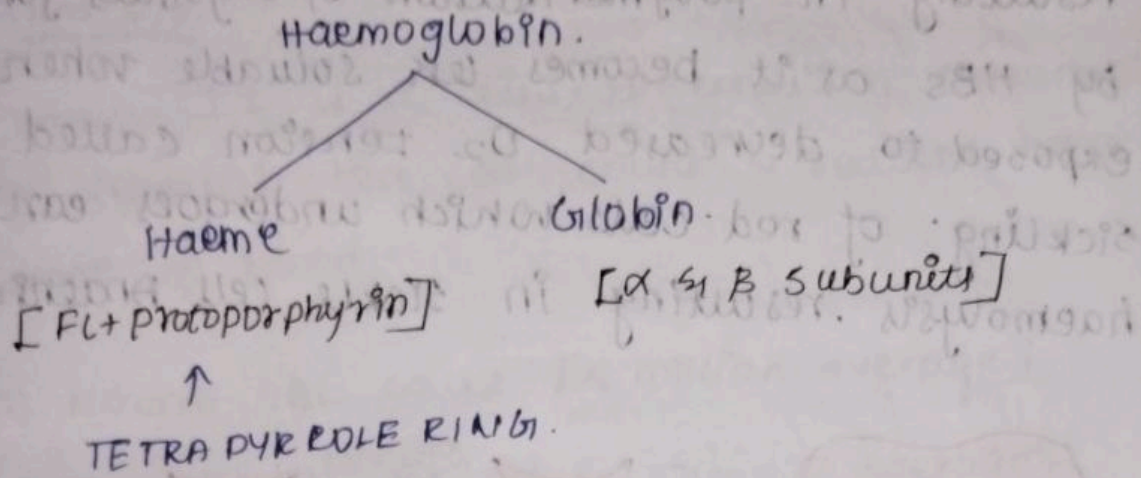 Haemoglobin.
Haeme Globin.
[Fe + Protoporphyrin] [α & β subunits]
↑
TETRA PYRROLE RING.